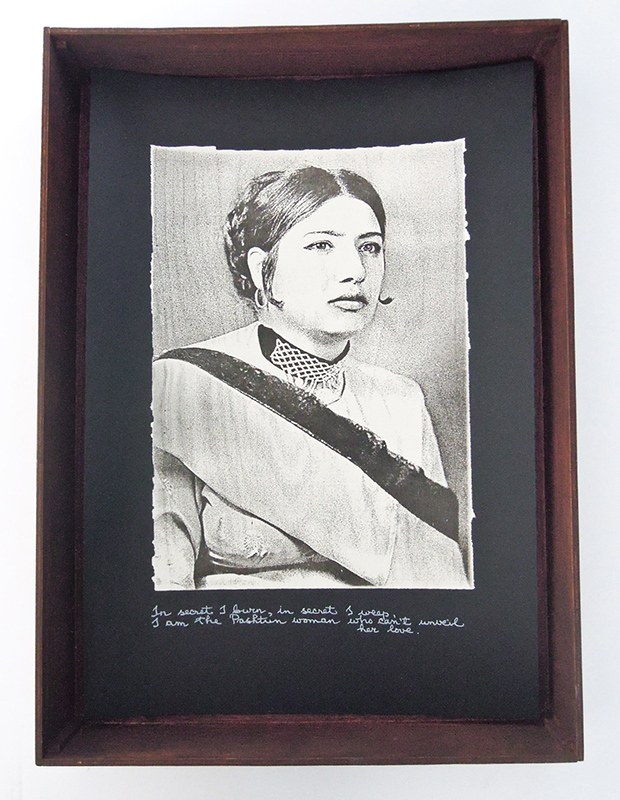 In secret I burn, in secret I weep,
I am the Pashtun woman who can't unveil
her love.